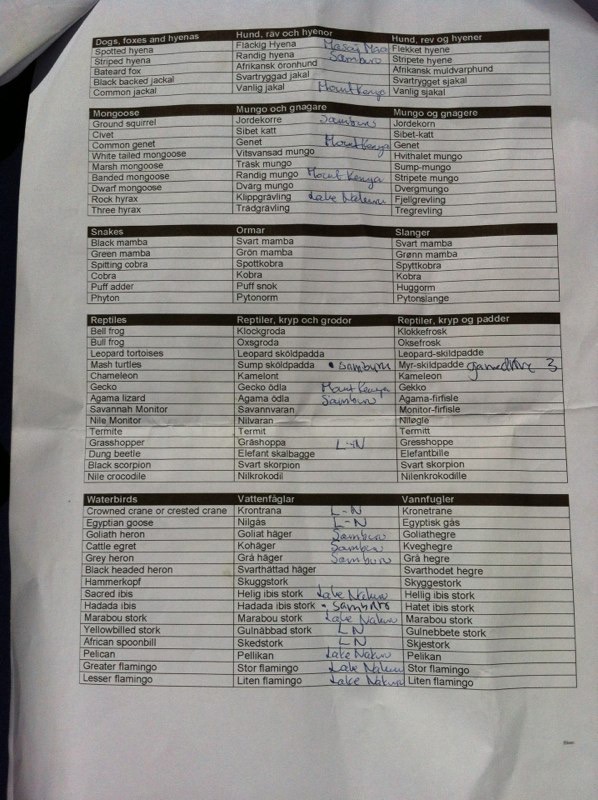 Dogs, foxes and hyenas Hund, räv och hyenor Hund, rev og hyener
Spotted hyena Fläckig Hyena Masai Mara Flekket hyene
Striped hyena Randig hyena Samburu Stripete hyene
Bateard fox Afrikansk öronhund Afrikansk muldvarphund
Black backed jackal Svartryggad jakal Svartrygget sjakal
Common jackal Vanlig jakal Mount Kenya Vanlig sjakal
Mongoose Mungo och gnagare Mungo og gnagere
Ground squirrel Jordekorre Samburu Jordekorn
Civet Sibet katt Sibet-katt
Common genet Genet Mount Kenya Genet
White tailed mongoose Vitsvansad mungo Hvithalet mungo
Marsh mongoose Träsk mungo Sump-mungo
Banded mongoose Randig mungo Mount Kenya Stripete mungo
Dwarf mongoose Dvärg mungo Dvergmungo
Rock hyrax Klippgrävling Lake Nakuru Fjellgrevling
Three hyrax Trädgrävling Tregrevling
Snakes Ormar Slanger
Black mamba Svart mamba Svart mamba
Green mamba Grön mamba Grønn mamba
Spitting cobra Spottkobra Spyttkobra
Cobra Kobra Kobra
Puff adder Puff snok Huggorm
Phyton Pytonorm Pytonslange
Reptiles Reptiler, kryp och grodor Reptiler, kryp og padder
Bell frog Klockgroda Klokkefrosk
Bull frog Oxsgroda Oksefrosk
Leopard tortoises Leopard sköldpadda Leopard-skildpadde
Mash turtles Sump sköldpadda • Samburu Myr-skildpadde gamedrive 3
Chameleon Kamelont Kameleon
Gecko Gecko ödla Mount Kenya Gekko
Agama lizard Agama ödla Samburu Agama-firfisle
Savannah Monitor Savannvaran Monitor-firfisle
Nile Monitor Nilvaran Niløgle
Termite Termit Termitt
Grasshopper Gräshoppa L-N Gresshoppe
Dung beetle Elefant skalbagge Elefantbille
Black scorpion Svart skorpion Svart skorpion
Nile crocodile Nilkrokodil Nilenkrokodille
Waterbirds Vattenfåglar Vannfugler
Crowned crane or crested crane Krontrana L-N Kronetrane
Egyptian goose Nilgås L-N Egyptisk gås
Goliath heron Goliat häger Samburu Goliathegre
Cattle egret Kohäger Samburu Kveghegre
Grey heron Grå häger Samburu Grå hegre
Black headed heron Svarthättad häger Svarthodet hegre
Hammerkopf Skuggstork Skyggestork
Sacred ibis Helig ibis stork Lake Nakuru Hellig ibis stork
Hadada ibis Hadada ibis stork • Samburu Hatet ibis stork
Marabou stork Marabou stork Lake Nakuru Marabou stork
Yellowbilled stork Gulnäbbad stork L N Gulnebbete stork
African spoonbill Skedstork L N Skjestork
Pelican Pellikan Lake Nakuru Pelikan
Greater flamingo Stor flamingo Lake Nakuru Stor flamingo
Lesser flamingo Liten flamingo Lake Nakuru Liten flamingo